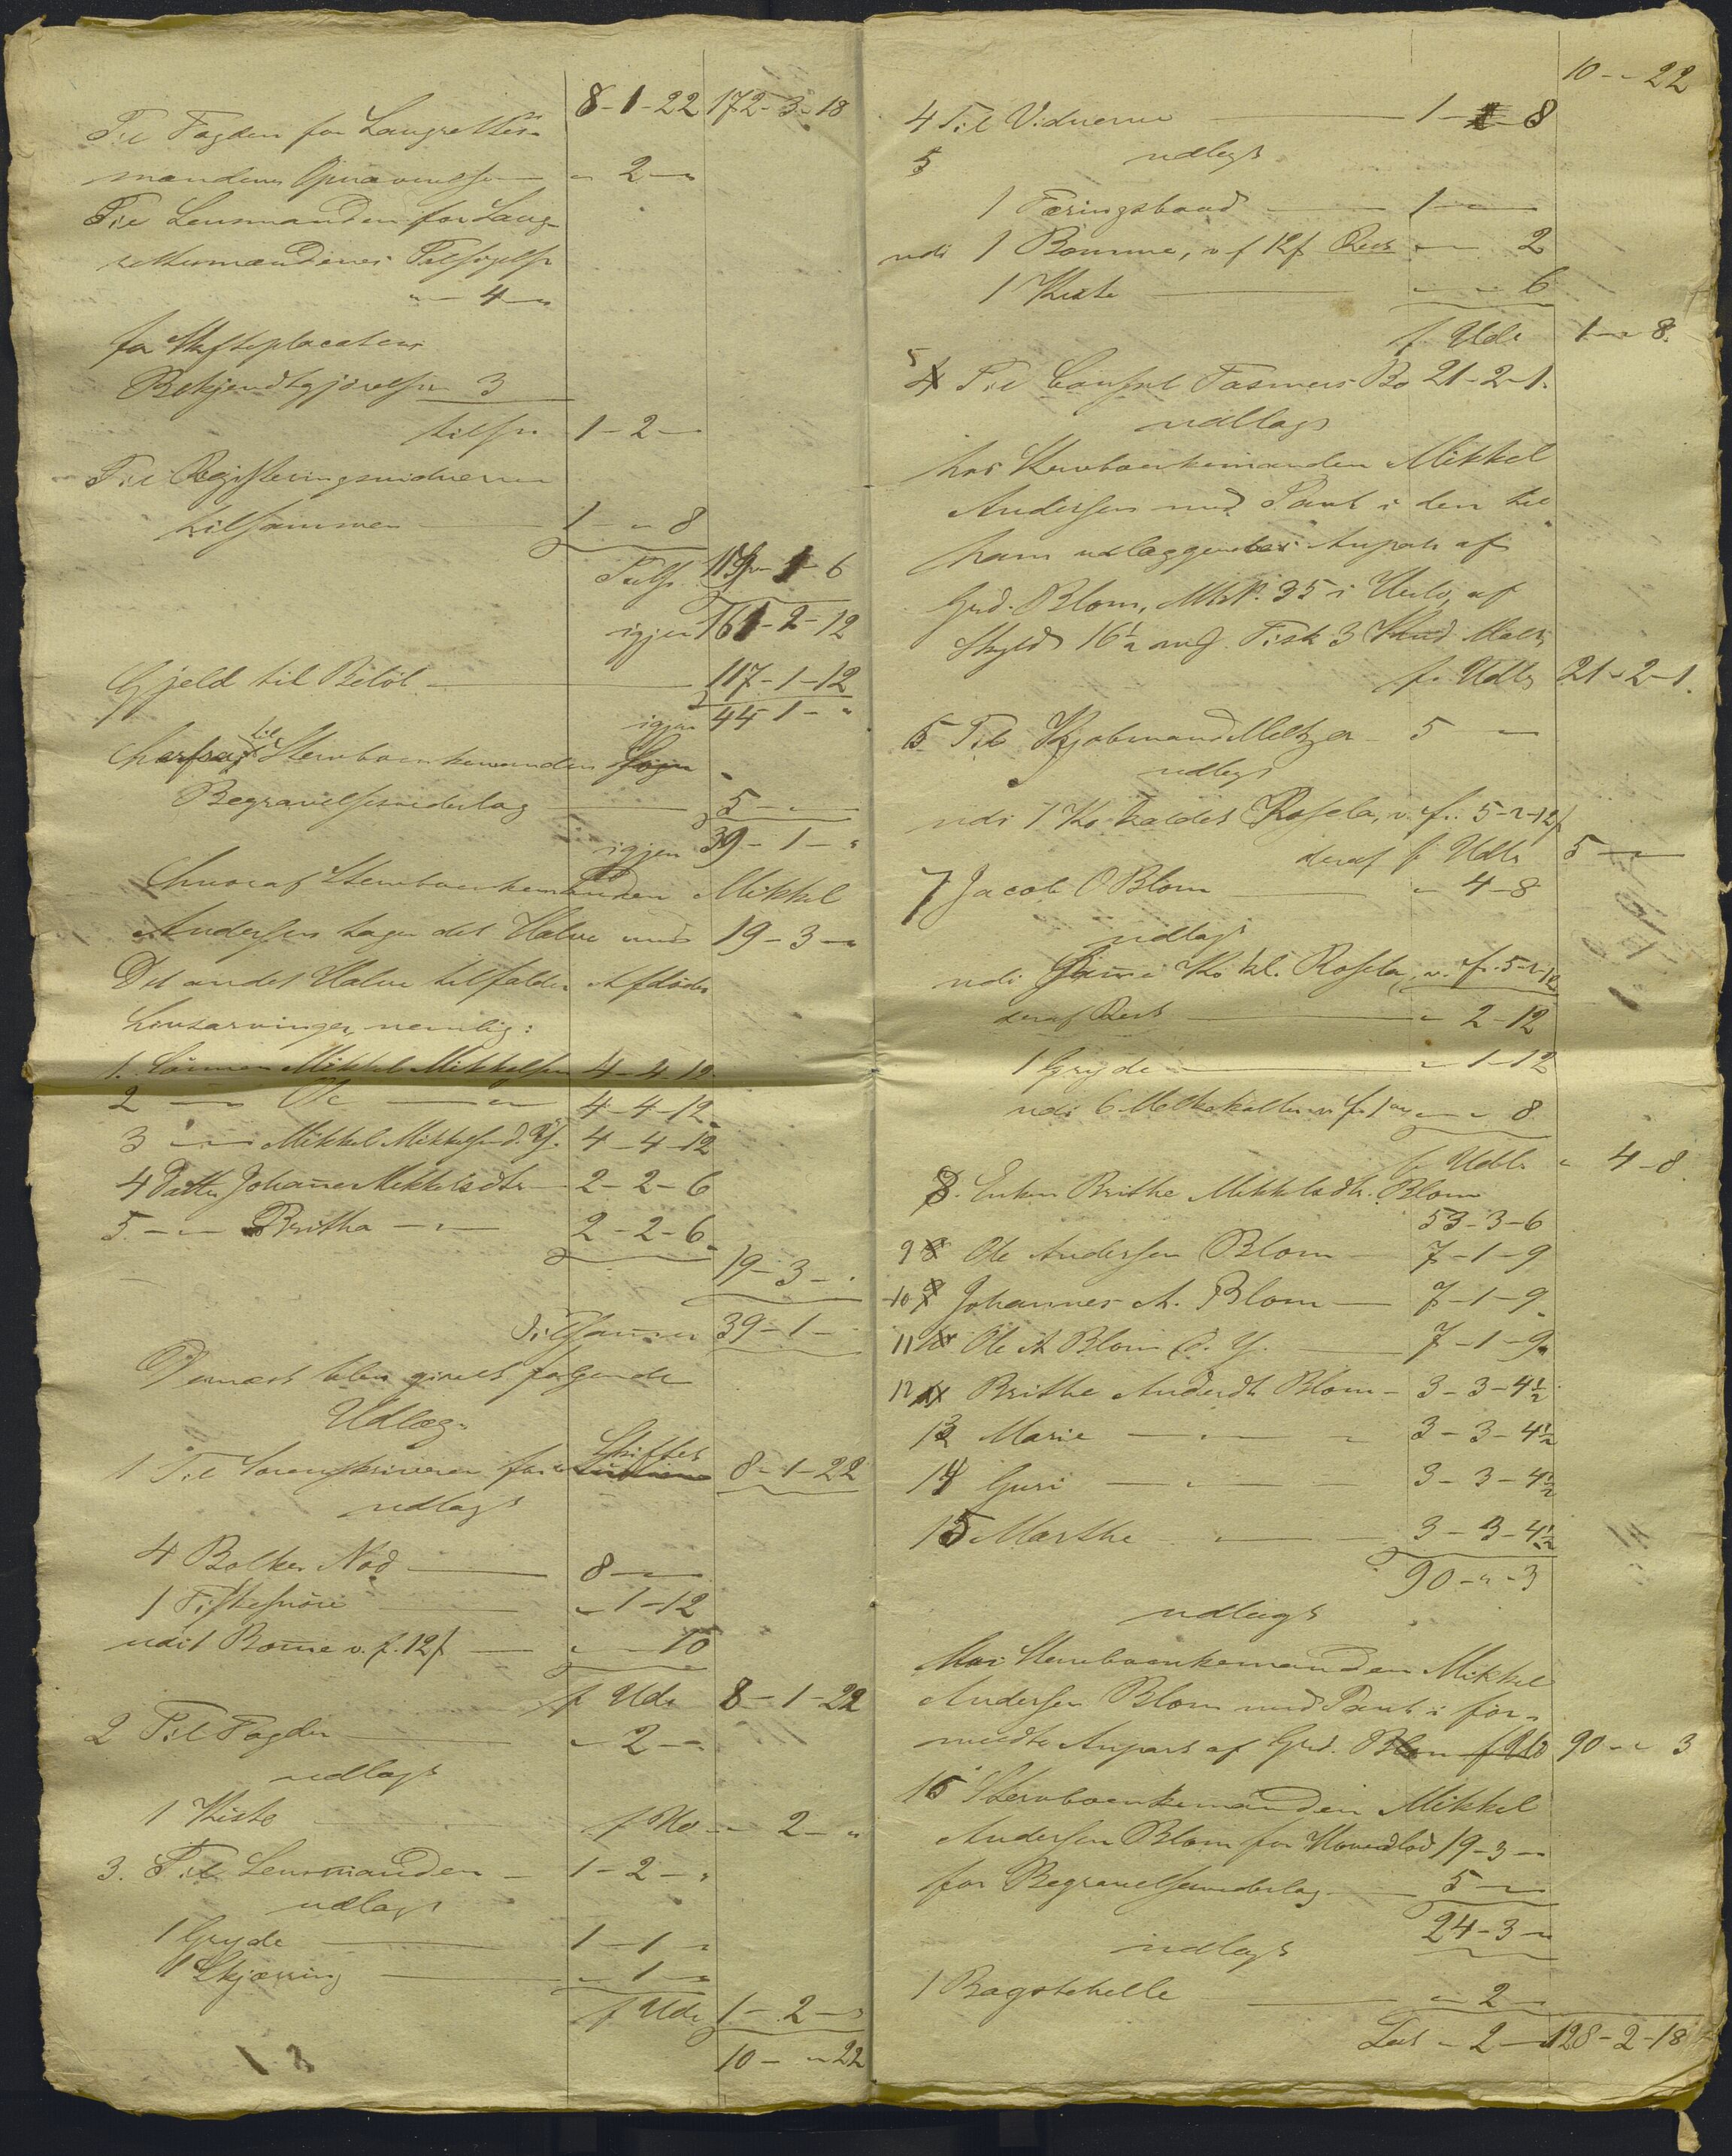 8-1-22 172-3-18
Til Fogden for Laugrettes-
mændenes Opnævnelse " 2 "
Til Lensmanden for Laug-
rettesmændenes Tilsigelse
" 4 "
for Skifteplacatens
Bekjendtgjörelse 3
tilsn 1-2-
Til Registeringsvidnerne
tilsammen 1 - " 8
Tils. 11 - 1 - 6
igjen 161-2-12
Gjeld til Belöb 117-1-12
igjen 44 1 - "
til Stervboenkemanden
Begravelsesvederlag 5 - " -
igjen 39 - 1 - "
hvoraf Stervboenkemanden Mikkel
Andersen tager det Halve med 19-3-"
Det andet Halve tilfalder Afdödes
Livsarvinger, nemlig:
1. Sönnen Mikkel Mikkelsen 4-4-12
2 — Ole — 4-4-12
3 — Mikkel Mikkelsen d. Y. 4-4-12
4 Datter Johanne Mikkelsdtr 2-2-6
5 — Britha — 2-2-6
19-3-"
Tilsammen 39-1-
Dernæst blev gjort fölgende
Udlæg:
1 Til Sorenskriveren for Skiftet 8-1-22
udlagt
4 Bolker Nöd 8 —
1 Fiskesnöre " 1-12
udi 1 Bom̄e v. f. 12 f " - 10
f Udl. 8-1-22
2 Til Fogden " 2 - "
udlagt
1 Kiste f Udl. - 2 - "
3. Til Lensmanden 1-2-"
udlagt
1 Gryde 1-1-"
1 Skjæring " 1 -
f Udl. 1-2-"
10 - " 22
10 - " 22
4 Til Vidnerne 1 - " 8
5 udlagt
1 Færingsbaad 1 —
udi 1 Bomme, v f 12 f Rest " - 2
1 Kiste " - " 6
f. Udl. 1 - " 8.
5 4 Til Consul Fasmers Bo 21-2-1.
udlagt
hos Stervboenkemanden Mikkel
Andersen med Pant i den til
ham udlæggendes Anpart af
Grd. Blom, Mtr. N. 35 i Herlö, af
Skyld 16½ mg. Fisk 3 Malt,
f. Udlg 21-2-1.
6 Til Kjöbmand Meltzer 5 —
udlagt
udi 1 Ko kaldet Rosela, v. f. 5-2-12 f
deraf f Udlg 5 —
7 Jacob O Blom " 4-8
udlagt
udi sam̄e Ko kl. Rosela, v. f. 5-2-12
deraf Rest " 2-12
1 Gryde " 1-12
udi 6 Melkekoller v f. 1 " - " 8
f Udlg " 4-8
8. Enken Brithe Mikkelsdtr. Blom
53-3-6
9 8 Ole Andersen Blom 7-1-9
10 9 Johannes A. Blom 7-1-9
11 10 Ole A Blom d. Y. 7-1-9
12 11 Brithe Andersdtr Blom 3-3-4½
13 Marie — 3-3-4½
14 Guri — 3-3-4½
15 Marthe — 3-3-4½
90-"-3
udlagt
Hos Stervboenkemanden Mikkel
Andersen Blom med Pant i for-
meldte Anpart af Grd. Blom f Udl 90 - " 3
16 Stervboenkemanden Mikkel
Andersen Blom for Hovedlod 19-3-"
for Begravelsesvederlag 5 - "
24-3-"
udlagt
1 Bagstehelle " 2 -
Lat. " 2 - 128-2-18